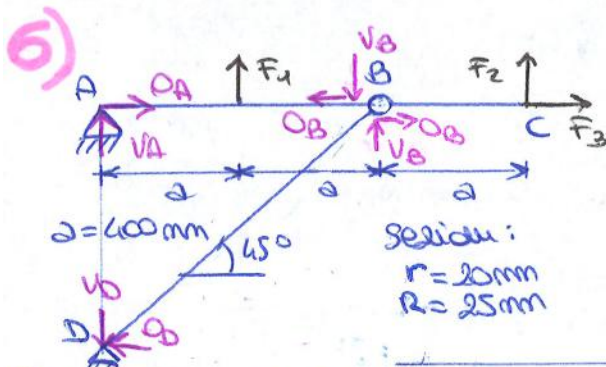 6)
V_B
F_1
F_2
A
O_A
B
O_B
O_B
C
F_3
V_A
V_B
a
a
a
a = 400 mm
45°
sezioni:
r = 20mm
R = 25mm
V_D
D
O_D